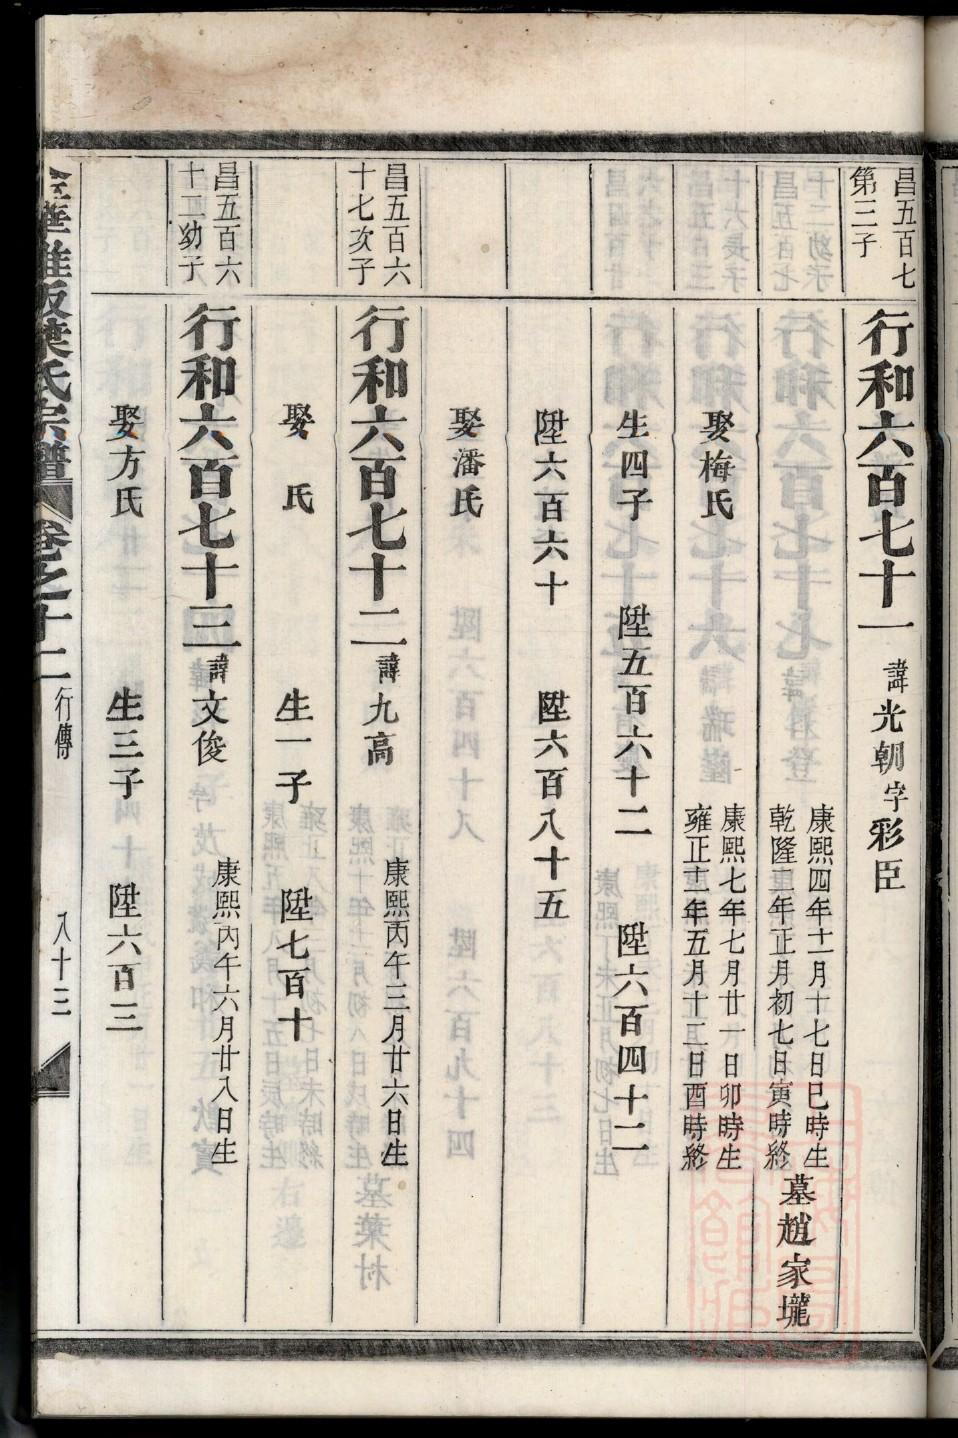 昌五百七
第三子
行和六百七十一 諱光朝字彩臣
康熙四年十一月十七日巳時生
乾隆二年正月初七日寅時終
墓趙家壠
娶梅氏
康熙七年七月廿一日卯時生
雍正十二年五月十三日酉時終
生四子 陞五百六十二 陞六百四十二
陞六百六十 陞六百八十五
娶潘氏
昌五百六
十七次子
行和六百七十二 諱九高
康熙丙午三月廿六日生
娶 氏 生一子 陞七百十
昌五百六
十二幼子
行和六百七十三 諱文俊
康熙丙午六月廿八日生
娶方氏 生三子 陞六百三
葉氏宗譜 卷之十二 行傳 八十三